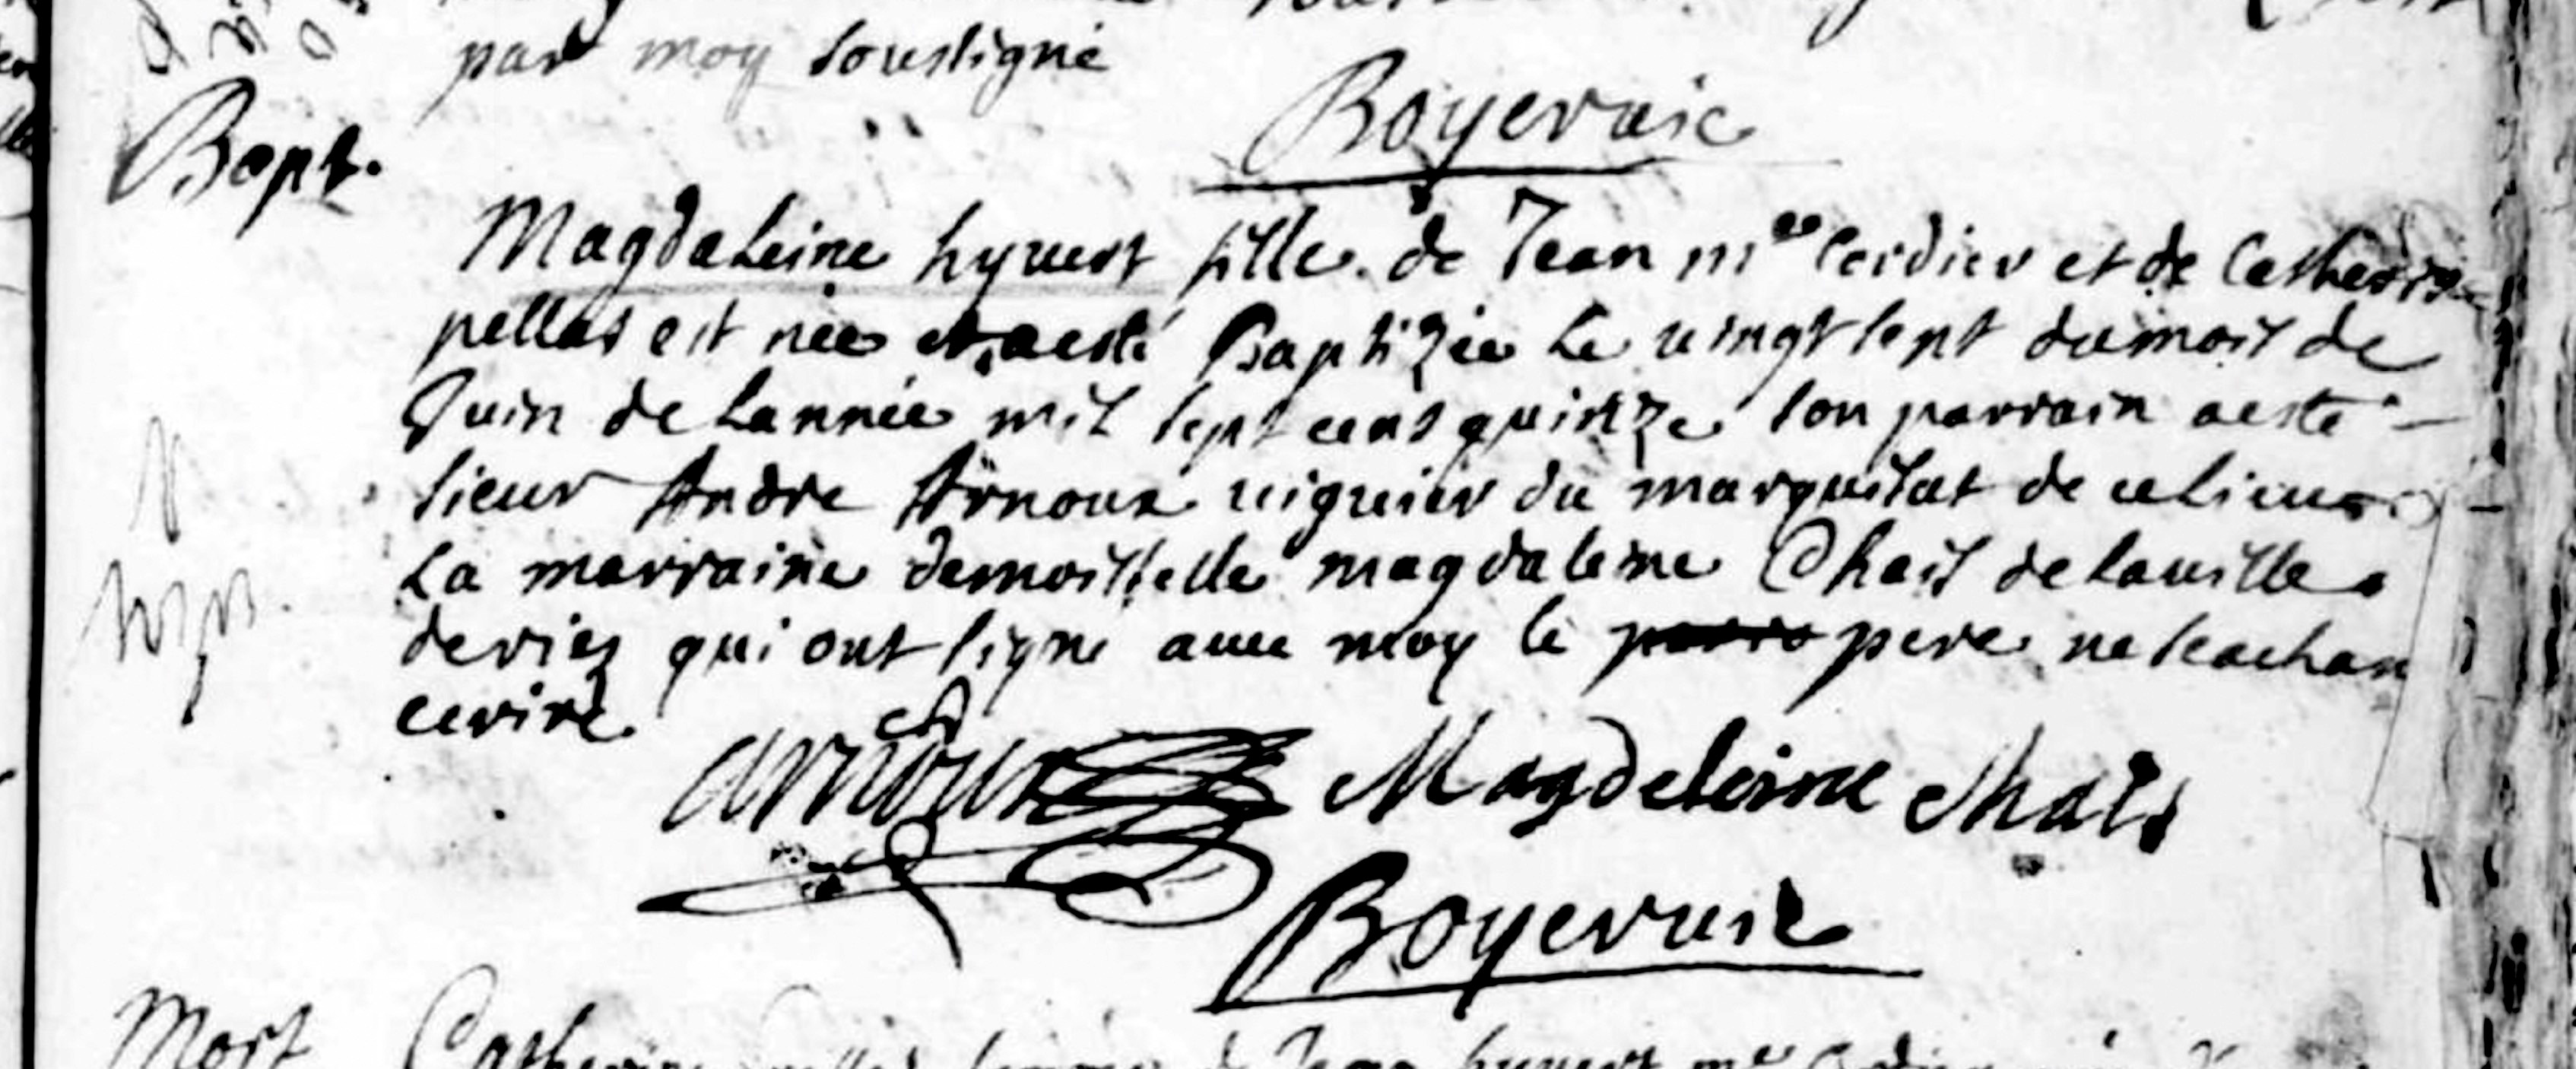 par moy soussigné
Boyer vic
Bapt.
Magdaleine hyvert fille de Jean m.re Cordier et de Catherine
pellas est née et a esté Baptizée le vingt sept du mois de
Juin de L'année mil sept cens quinze son parrain a esté
sieur André Arnoux viguier du marquisat de ce lieu
La marraine demoisselle magdaleine Chaïs de la ville
de riez qui ont signé avec moy le pere ne scachan
ecrire
arnoux Magdeleine Chaïs
Boyer vic
Mort Catherine pellas femme de Jean hyvert m.re Cordier